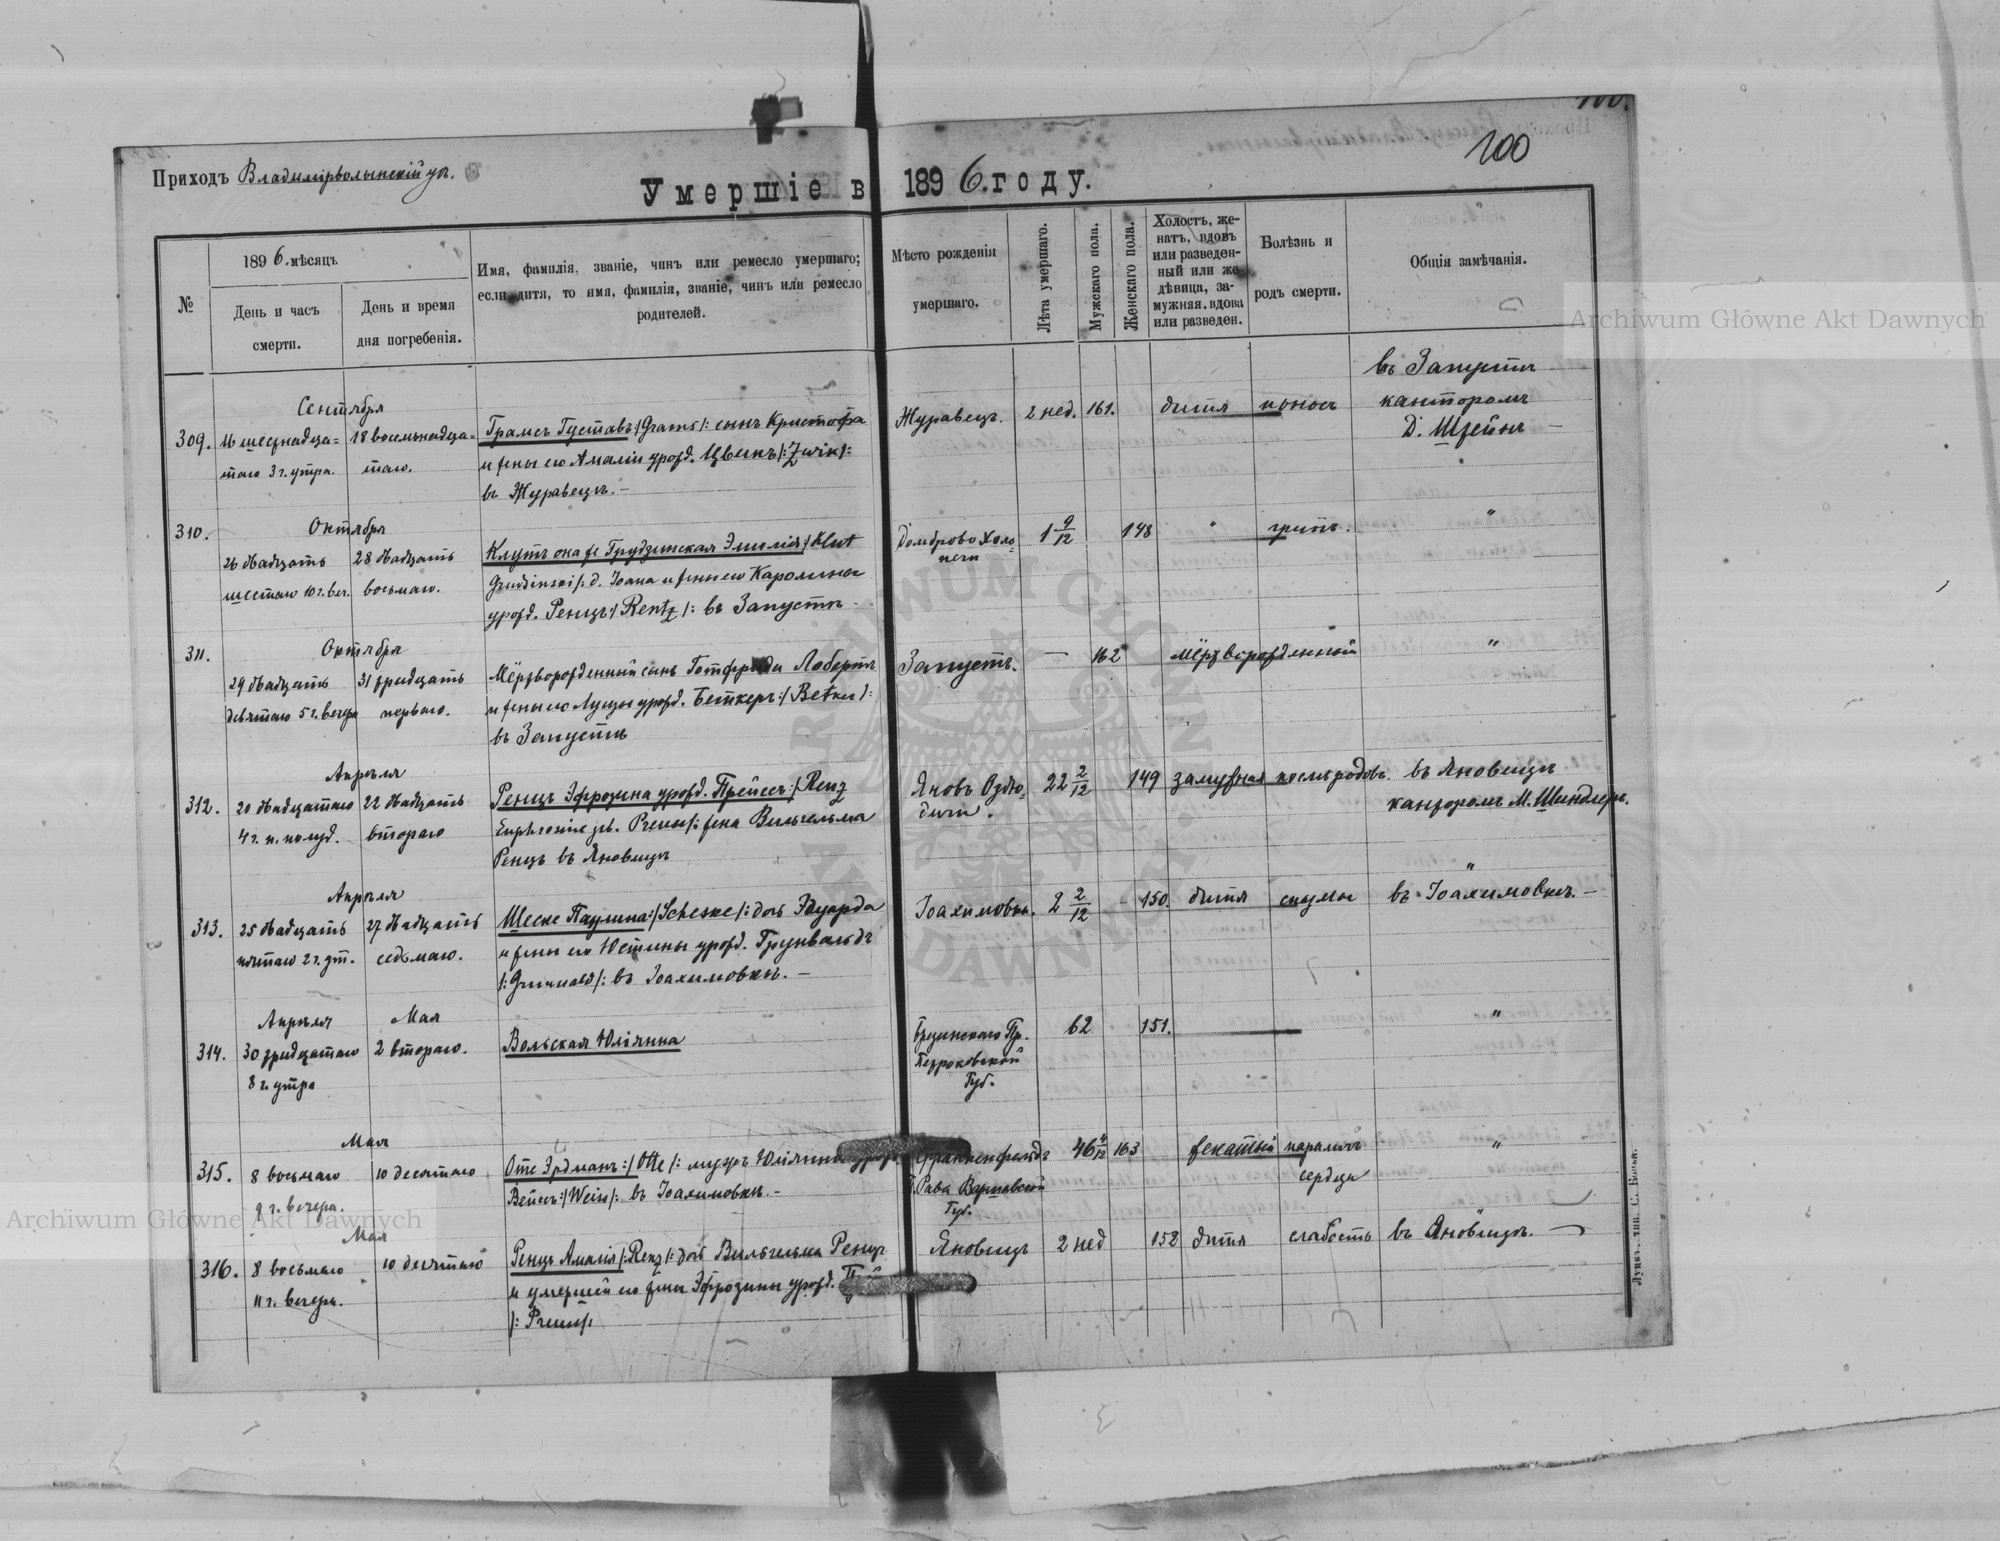 100
Приходъ Владимірволынскій уѣ.
Умершіе въ 1896. году.
№
1896. мѣсяцъ
День и часъ смерти.
День и время дня погребенія.
Имя, фамилія, званіе, чинъ или ремесло умершаго;
если дитя, то имя, фамилія, званіе, чинъ или ремесло
родителей.
Мѣсто рожденія
умершаго.
Лѣта умершаго.
Мужскаго пола.
Женскаго пола.
Холостъ, же-
натъ, вдовъ
или разведен-
ный или же
дѣвица, за-
мужняя, вдова
или разведен.
Болѣзнь и
родъ смерти.
Общія замѣчанія.
Archiwum Główne Akt Dawnych
309.
Сентября
16 шестнадца=
таго 3 г. утра.
18 восемнадца=
таго.
Грамсъ Густавъ /:Grams/: сынъ Кристофа
и жены его Амаліи урожд. Цвикъ /:Zwik/:
въ Журавецъ. –
Журавецъ.
2 нед.
161.
дитя
поносъ
въ Запустѣ
канторомъ
Д. Штейнъ –
310.
Октября
26 двадцать
шестаго 10 г. веч.
28 двадцать
восьмаго.
Клутъ она же Грудзинская Эмилія /:Klut
Grudzinski/: д. Іоана и жены его Каролины
урожд. Ренцъ /:Rentz/: въ Запустѣ –
Домброво Холо=
печи
1 9/12
148
"
грипъ.
"
311.
Октября
29 двадцать
девятаго 5 г. вечера
31 тридцать
перваго.
Мёртворожденный сынъ Готфрида Лоберта
и жены его Луизы урожд. Беткеръ /:Betker/:
въ Запустѣ
Запустъ.
—
162
мёртворожденный
"
312.
Апрѣля
20 двадцатаго
4 г. п. полуд.
22 двадцать
втораго
Ренцъ Эфрозина урожд. Прейссъ /:Renz
Euphrosine geb. Preuss/: жена Вильгельма
Ренцъ въ Яновецъ
Яновъ Оздю=
тичи.
22 2/12
149
замужная
послѣ родовъ.
въ Яновецъ
канторомъ М. Шиндлеръ.
313.
Апрѣля
25 двадцать
пятаго 2 г. ут.
27 двадцать
седьмаго.
Шеске Паулина /:Scheske/: дочь Эдуарда
и жены его Юстины урожд. Грунвальдъ
/:Grunwald/: въ Іоахимовкѣ. –
Іоахимовка.
2 2/12
150.
дитя
"
въ Іоахимовкѣ. –
314.
Апрѣля
30 тридцатаго
8 г. утра
Мая
2 втораго.
Вольская Юліянна
Петроковской
Губ.
62
151.
"
315.
Мая
8 восьмаго
9 г. вечера.
10 десятаго
Оте Эрдманъ /:Otte/: мужъ Юліянны урожд.
Вейсъ /:Weiss/: въ Іоахимовкѣ. –
Франкенфельдъ
Рава Варшавской
Губ.
46 4/12
163
женатый
параличъ
сердца
"
316.
Мая
8 восьмаго
11 г. вечера.
10 десятаго
Ренцъ Амалія /:Renz/: дочь Вильгельма Ренцъ
и умершей его жены Эфрозины урожд.
/:Preuss/:
Яновецъ
2 нед
152
дитя
слабость
въ Яновецъ. –
Archiwum Główne Akt Dawnych